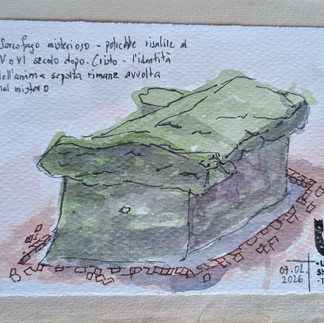 Sarcofago misterioso - potrebbe risalire al
V o VI secolo dopo Cristo - l'identità
dell'anima sepolta rimane avvolta
nel mistero
07.02.
2026